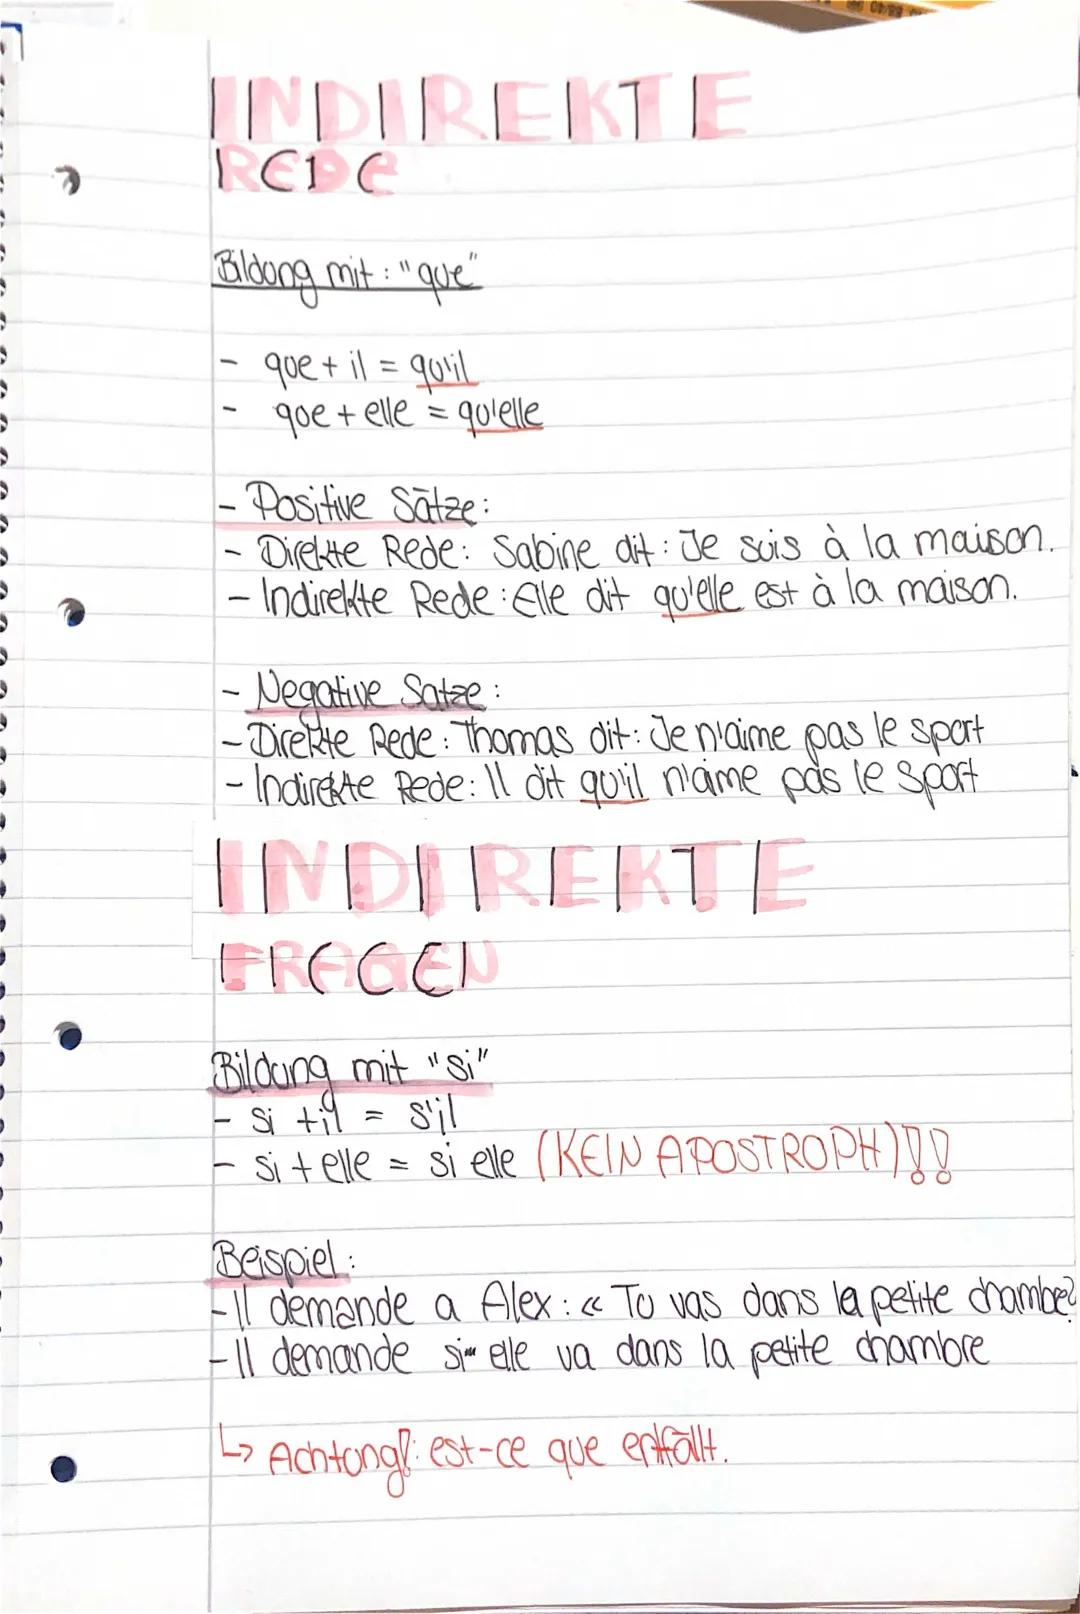 INDIREKTE
REDE
Bildung mit: "que"
- que + il = qu'il
- que + elle = qu'elle
- Positive Sätze:
- Direkte Rede: Sabine dit: Je suis à la maison.
- Indirekte Rede: Elle dit qu'elle est à la maison.
- Negative Sätze:
- Direkte Rede: Thomas dit: Je n'aime pas le sport
- Indirekte Rede: Il dit qu'il n'aime pas le sport
INDIREKTE
FRAGEN
Bildung mit "si"
- si + il = s'il
- si + elle = si elle (KEIN APOSTROPH)!!
Beispiel:
- Il demande a Alex: « Tu vas dans la petite chambe?
- Il demande si elle va dans la petite chambre
↳ Achtung!: est-ce que entfällt.